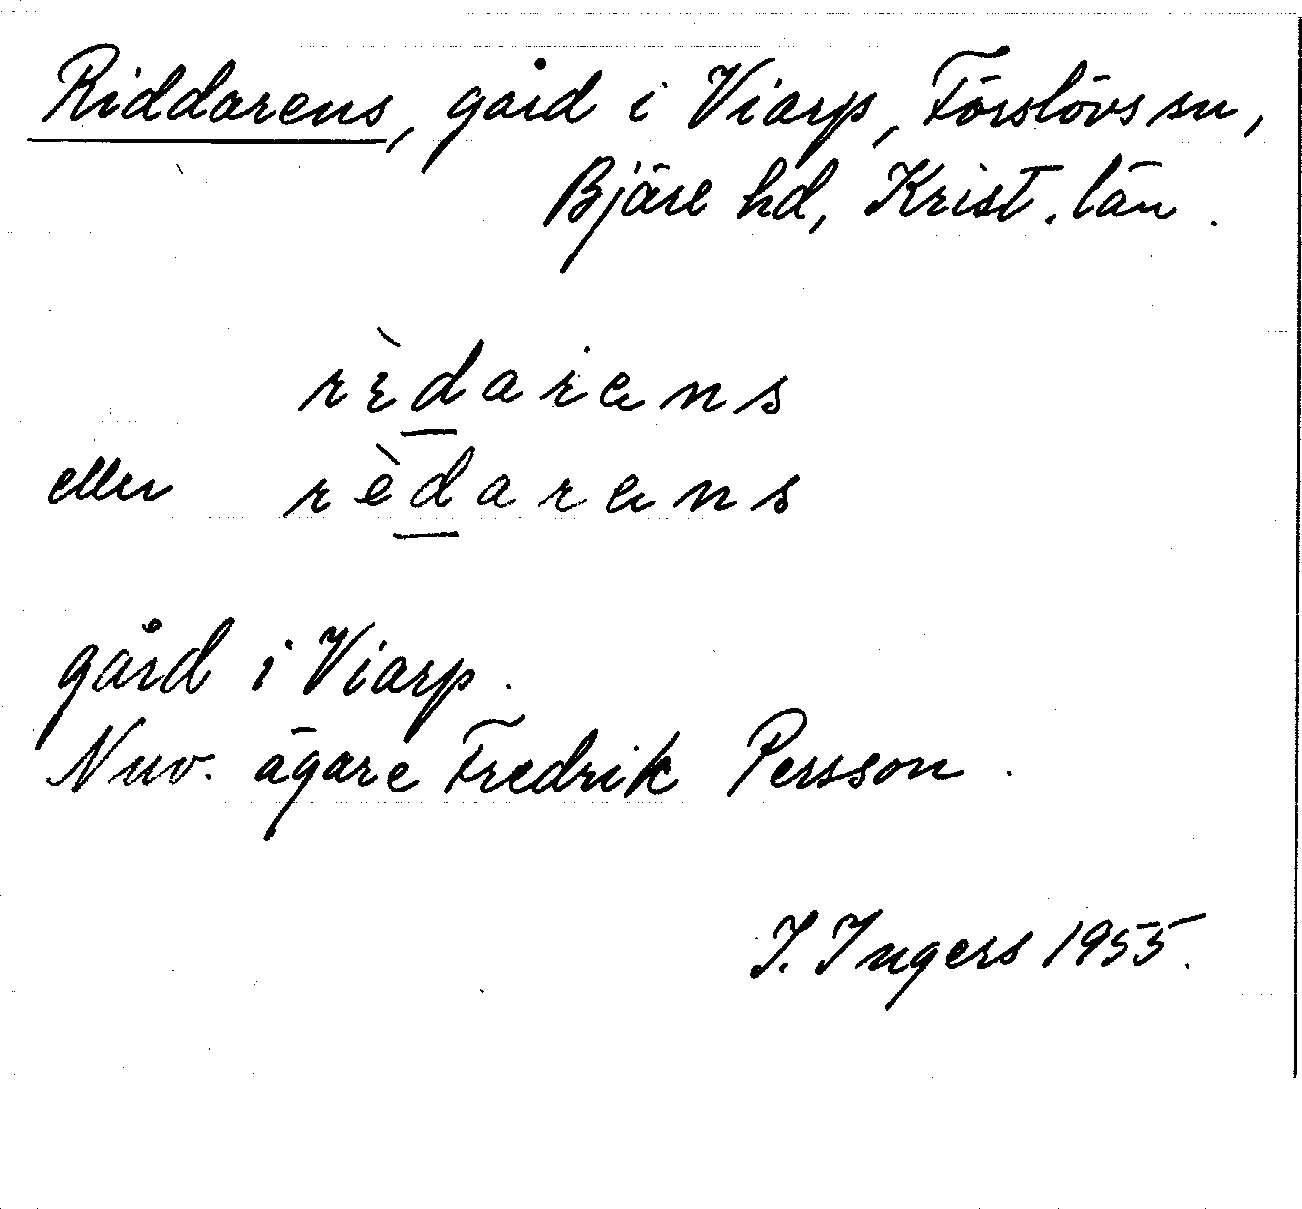 Riddarens, gård i Viarp, Förslövs sn,
Bjäre hd, Krist. län.
rɛ̀darens
eller rèdarens
gård i Viarp.
Nuv. ägare Fredrik Persson.
I. Ingers 1955.